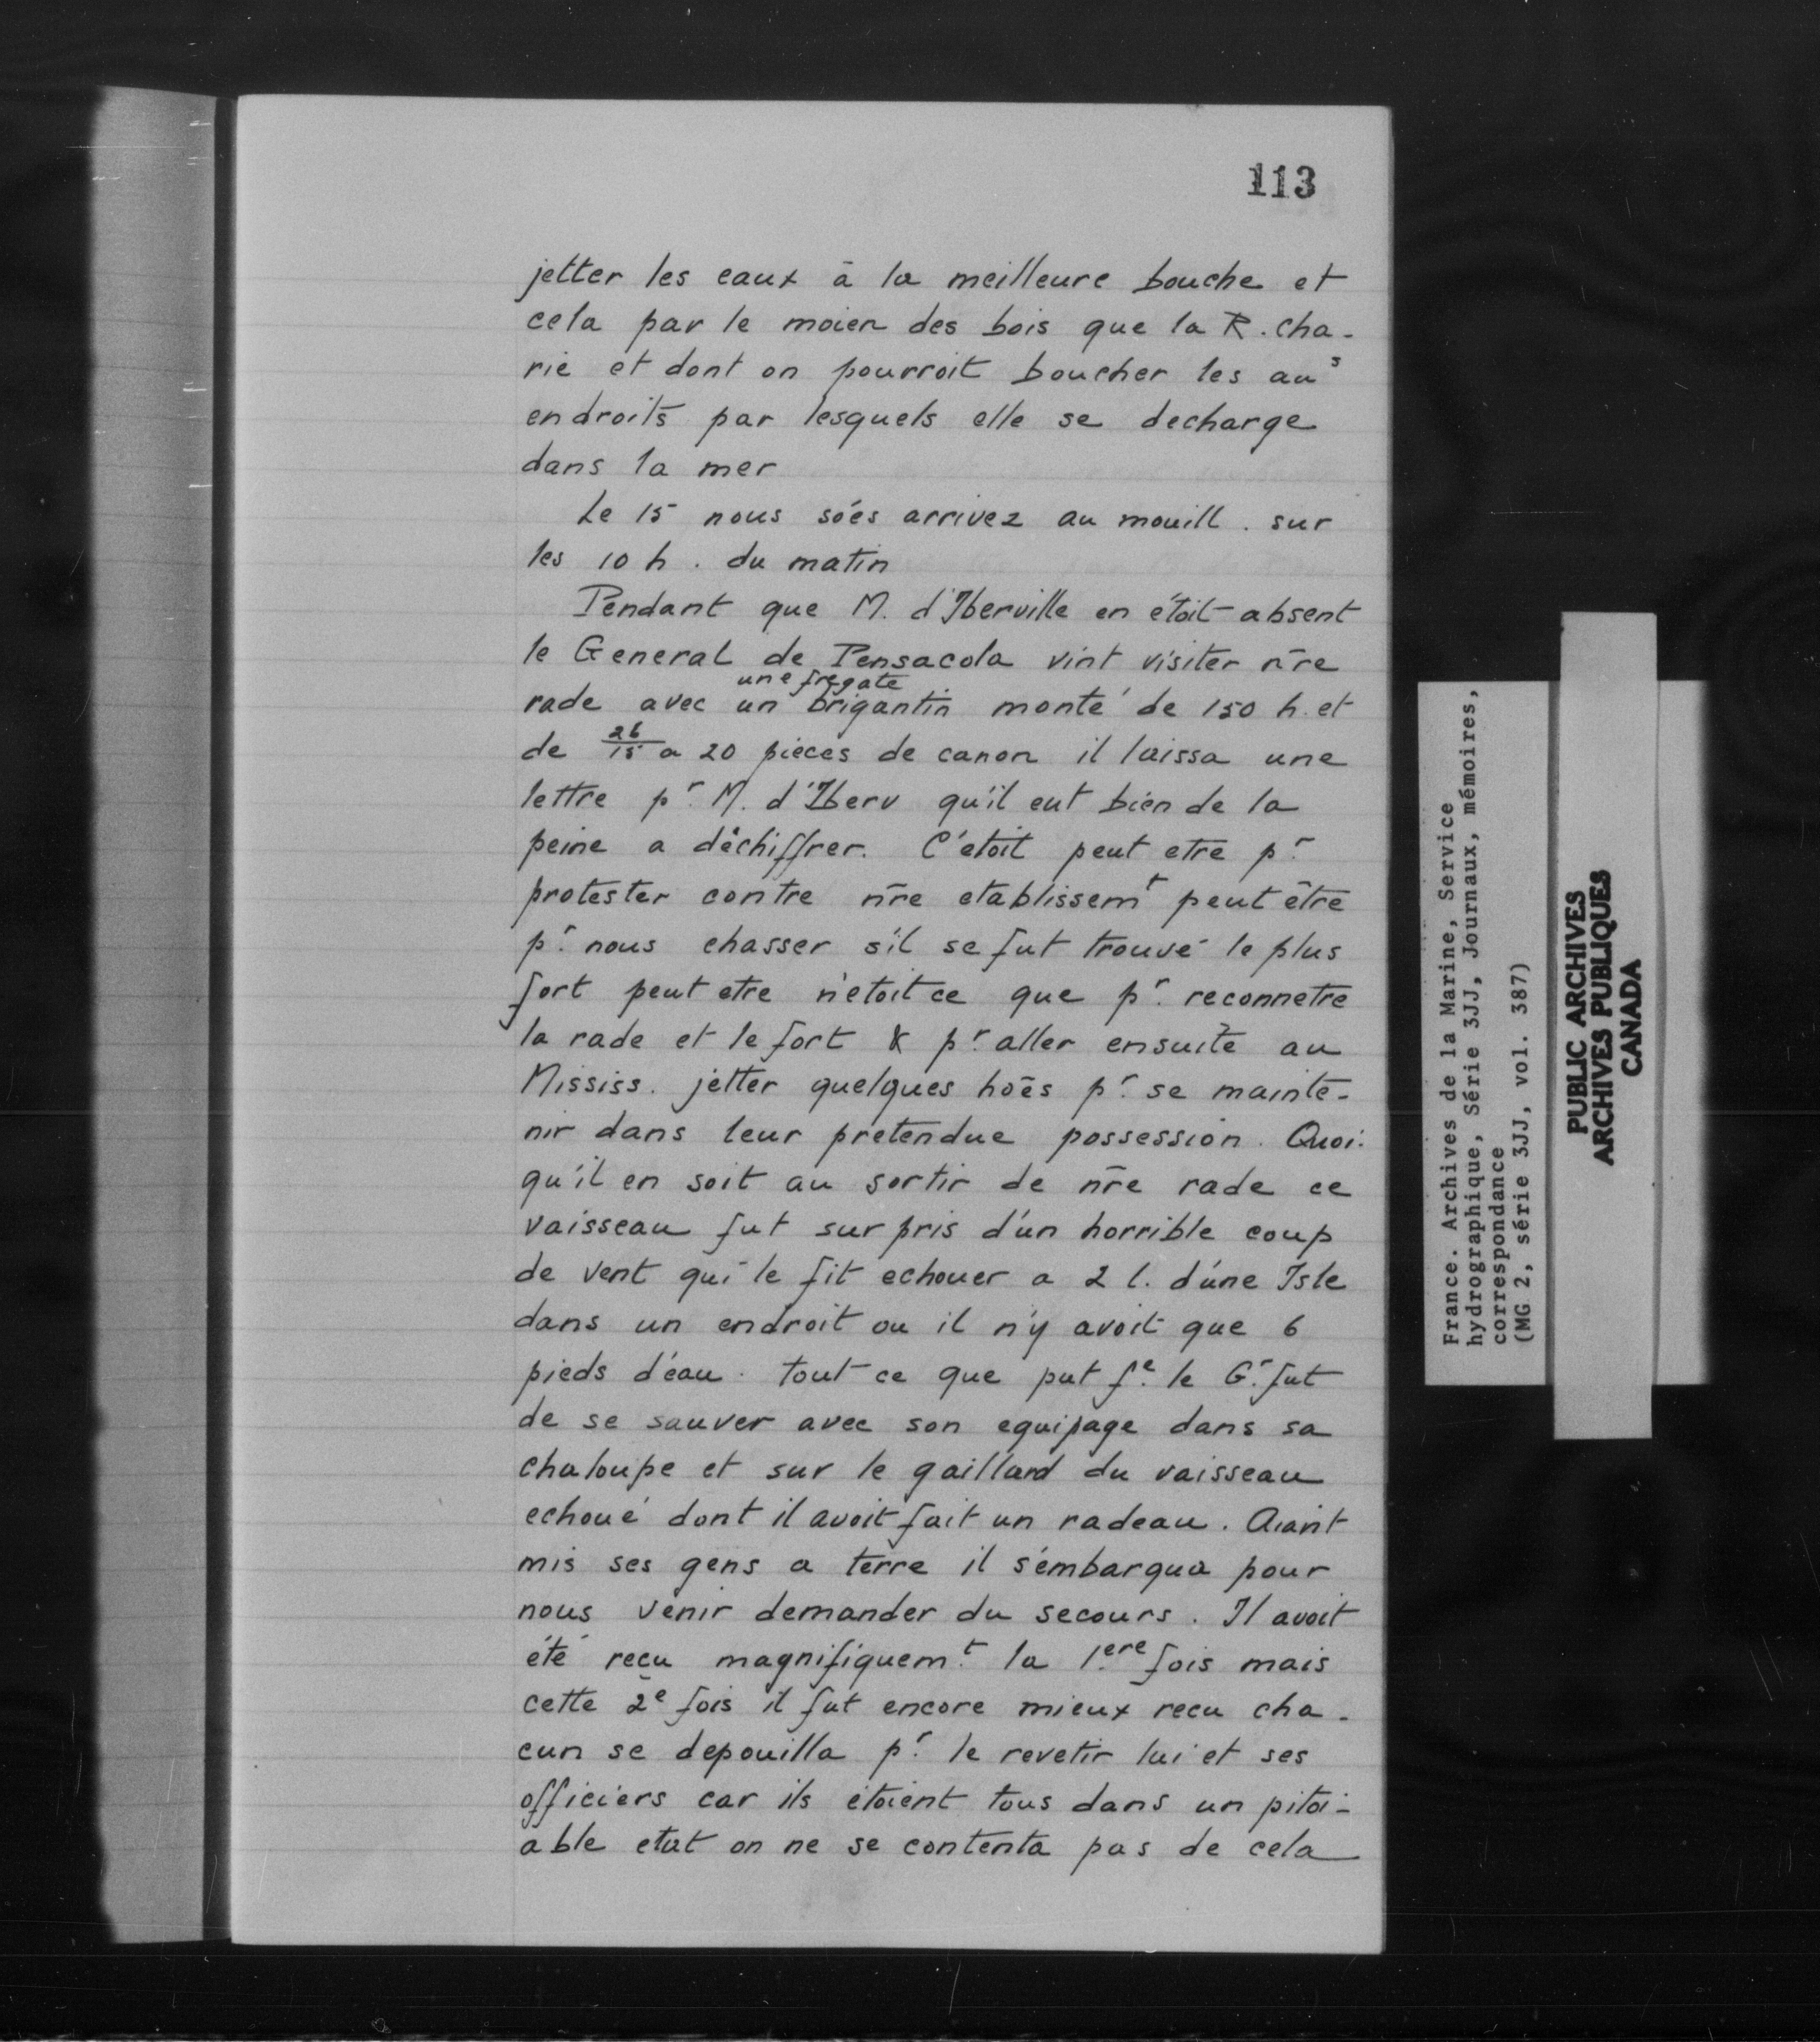 113
jetter les eaux à la meilleure bouche et
cela par le moien des bois que la R. cha-
rie et dont on pourroit boucher les au^s
endroits par lesquels elle se decharge
dans la mer
Le 15 nous sōēs arrivez au mouill. sur
les 10 h. du matin
Pendant que M. d'Iberville en étoit absent
le General de Pensacola vint visiter n̄re
une fregate
rade avec un brigantin monté de 150 h. et
26
de 15 a 20 pieces de canon il laissa une
lettre p^r M. d'Iberv qu'il eut bien de la
peine a déchiffrer. C'etoit peut etre p^r.
protester contre n̄re etablissem^t peut être
p^r. nous chasser s'il se fut trouvé le plus
fort peut etre n'etoit ce que p^r. reconnetre
la rade et le fort & p^r. aller ensuite au
Mississ. jetter quelques hōēs p^r. se mainte-
nir dans leur pretendue possession. Quoi-
qu'il en soit au sortir de n̄re rade ce
vaisseau fut surpris d'un horrible coup
de vent qui le fit echouer a 2 l. d'une Isle
dans un endroit ou il n'y avoit que 6
pieds d'eau. tout ce que put f^e. le G^r. fut
de se sauver avec son equipage dans sa
chaloupe et sur le gaillard du vaisseau
echoué dont il avoit fait un radeau. Aiant
mis ses gens a terre il s'embarqua pour
nous venir demander du secours. Il avoit
été reçu magnifiquem^t. la 1^ere fois mais
cette 2^e fois il fut encore mieux recu cha-
cun se depouilla p^r. le revetir lui et ses
officiers car ils étoient tous dans un pitoi-
able etat on ne se contenta pas de cela
France. Archives de la Marine, Service
hydrographique, Série 3JJ, Journaux, mémoires,
correspondance
(MG 2, série 3JJ, vol. 387)
PUBLIC ARCHIVES
ARCHIVES PUBLIQUES
CANADA